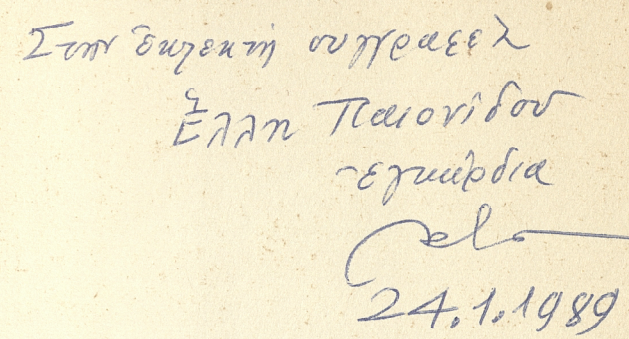 Στην εκλεκτή συγγραφέα
Έλλη Παιονίδου
εγκάρδια
24.1.1989